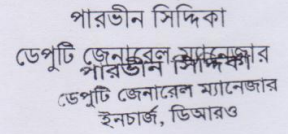 পারভীন সিদ্দিকা
ডেপুটি জেনারেল ম্যানেজার
পারভীন সিদ্দিকা
ডেপুটি জেনারেল ম্যানেজার
ইনচার্জ, ডিআরও